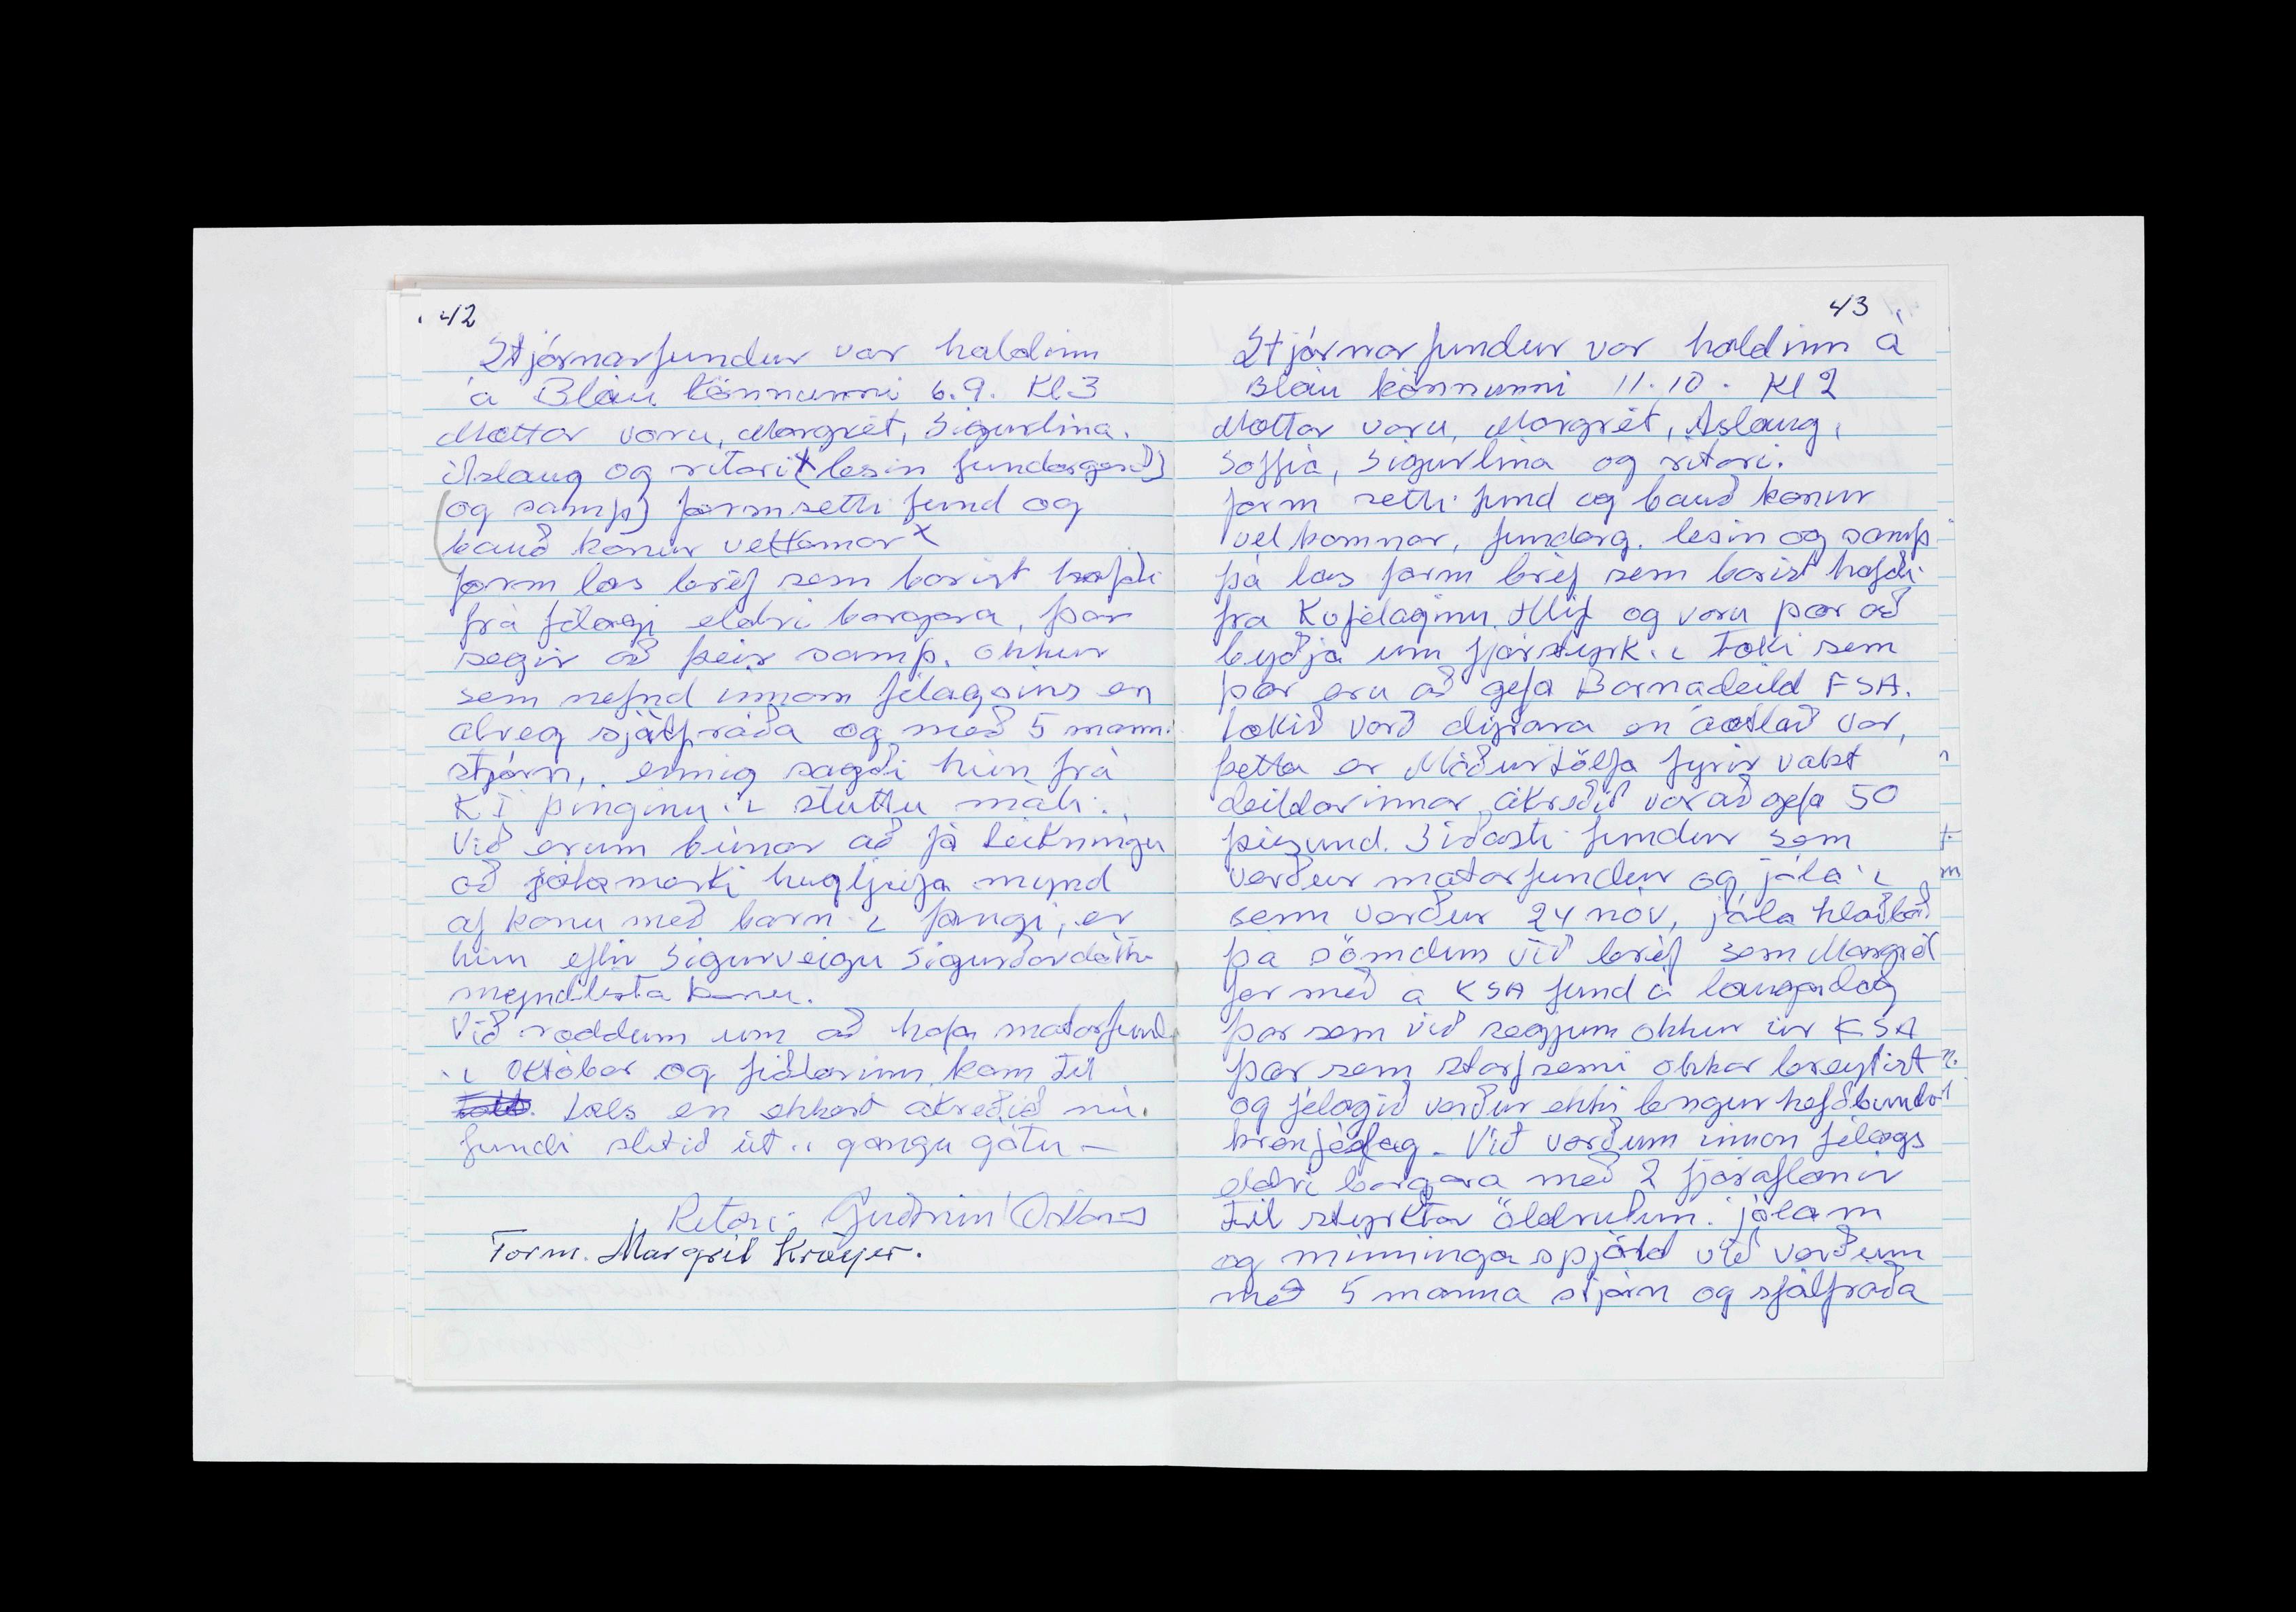 42
Stjórnarfundur var haldinn
á Bláu könnunni 6.9. Kl 3
Mættar voru, Margrét, Sigurlína.
Áslaug og ritari x (lesin fundargerð)
(og samþ) form setti fund og
bauð konur velkomar x
form las bréf sem borist hafði
frá félagi eldri borgara, þar
segir að þeir samþ. okkur
sem nefnd innan félagsins en
alveg sjálfráða og með 5 mann.
stjórn, einnig sagði hún frá
K Í þinginu í stuttu máli.
Við erum búnar að fá teikningu
að jólamerki hugljúfa mynd
af konu með barn í fangi, er
hún eftir Sigurveigu Sigurðardóttir
myndlista konu.
Við ræddum um að hafa matarfund
í Október og fiðlarinn kom til
tals en ekkert ákveðið nú.
fundi slitið út í göngu götu –
Ritari Guðrún Óskars
Form. Margrét Kröyer.
43
Stjórnarfundur var haldinn á
Bláu könnunni 11.10. Kl 2
Mættar voru, Margrét, Áslaug,
Soffía, Sigurlína og ritari.
form setti fund og bauð konur
velkomnar, fundarg. lesin og samþ
þá las form bréf sem borist hafði
frá Kvfélaginu Hlíf og voru þær að
byðja um fjárstyrk í tæki sem
þær eru að gefa Barnadeild FSA.
tækið varð dýrara en áætlað var,
þetta er Móðurtölfa fyrir vakt
deildarinnar ákveðið var að gefa 50
þúsund. Síðasti fundur sem
verður matarfundur og jóla í
senn verður 24 nóv, jóla hlaðbo
þá sömdum við bréf sem Margrét
fer með á KSA fund á laugardag
þar sem við segjum okkur úr KSA
þar sem starfsemi okkar breytist
og félagið verður ekki lengur hefðbundið
kvenfélag. Við verðum innan félags
eldri borgara með 2 fjáraflanir
til styrktar öldruðum. jólam
og minninga spjöld við verðum
með 5 manna stjórn og sjálfráða